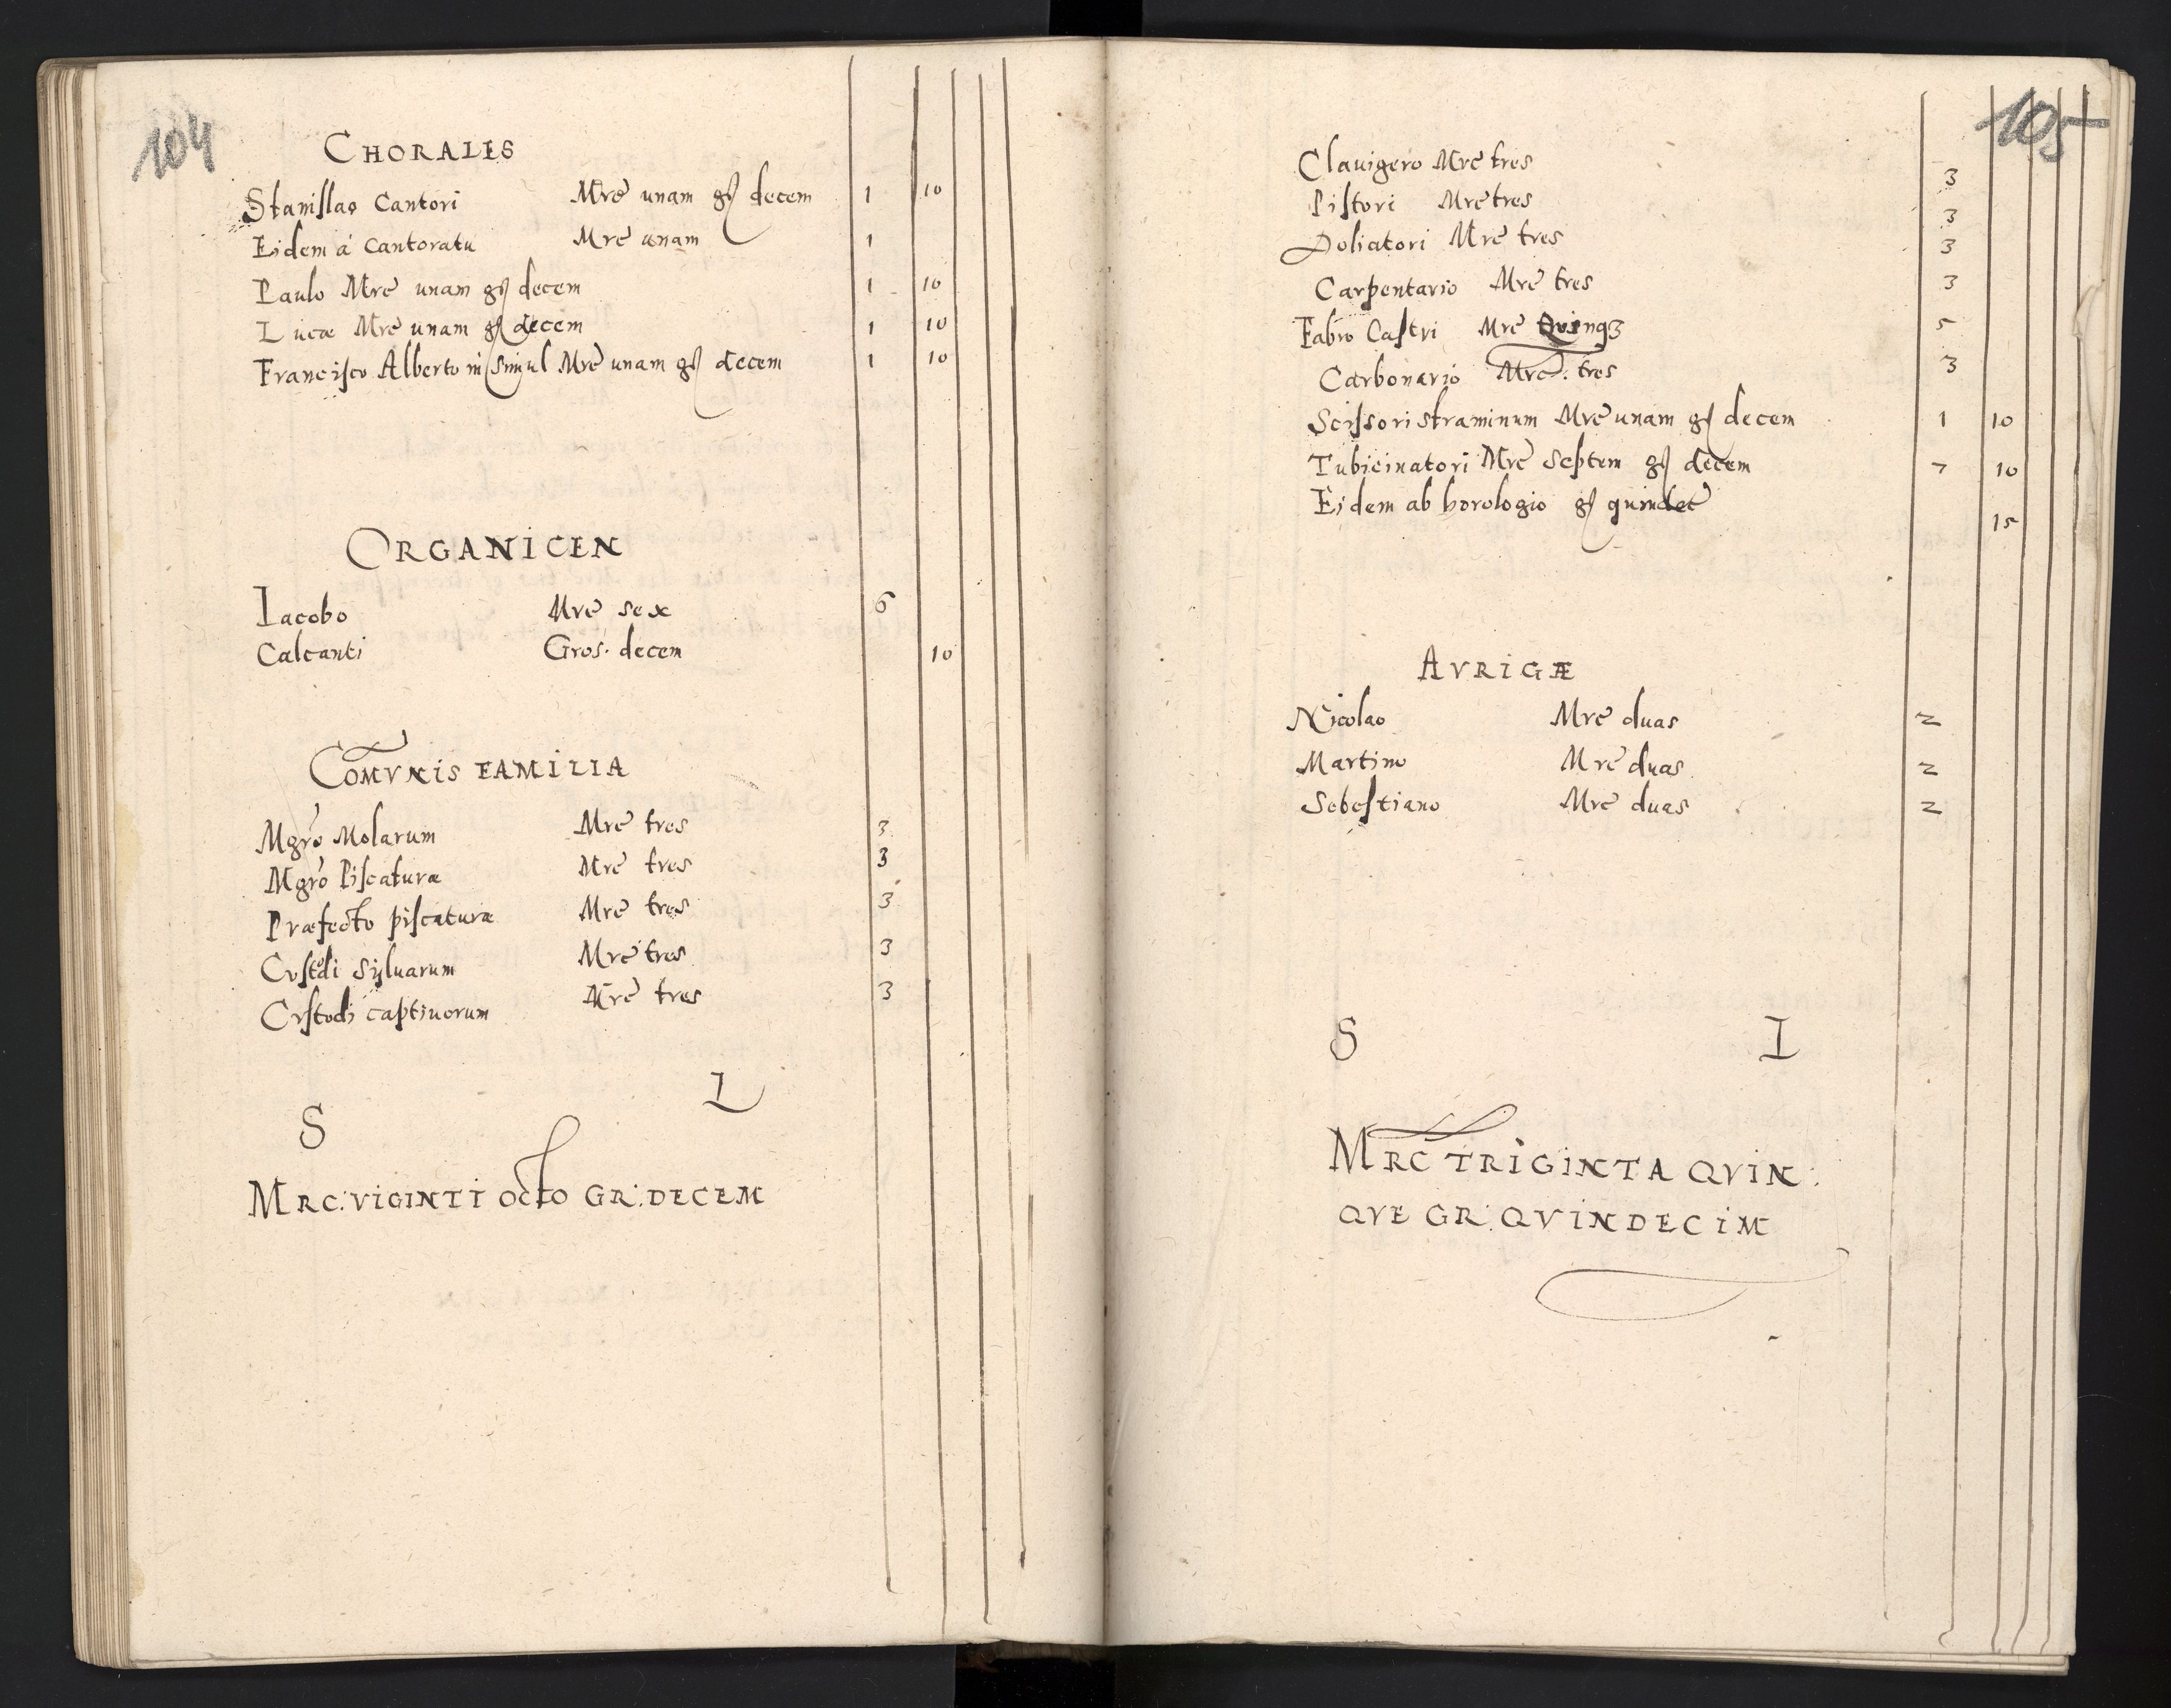 104
CHORALES
Stanislao Cantori Mrc unam gs decem 1 10
Eidem á Cantoratu Mrc unam 1
Paulo Mrc unam gs decem 1 10
Lucæ Mrc unam gs decem 1 10
Francisco Alberto in simul Mrc unam gs decem 1 10
ORGANICEN
Iacobo Mrc sex 6
Calcanti Gros: decem 10
COMVNIS FAMILIA
Mgro Molarum Mrc tres 3
Mgro Piscaturæ Mrc tres 3
Præfecto piscaturæ Mrc tres 3
Custodi Syluarum Mrc tres 3
Custodi captiuorum Mrc tres 3
S L
MRC: VIGINTI OCTO GR: DECEM
105
Clauigero Mrc tres 3
Pistori Mrc tres 3
Doliatori Mrc tres 3
Carpentario Mrc tres 3
Fabro Castri Mrc Quinqꝫ 5
Carbonario Mrc: tres 3
Scissori straminum Mrc unam gs decem 1 10
Tubicinatori Mrc Septem gs decem 7 10
Eidem ab horologio gs quindec 15
AVRIGÆ
Nicolao Mrc duas 2
Martino Mrc duas 2
Sebestiano Mrc duas 2
S L
MRC TRIGINTA QVIN:
QVE GR: QVINDECIM